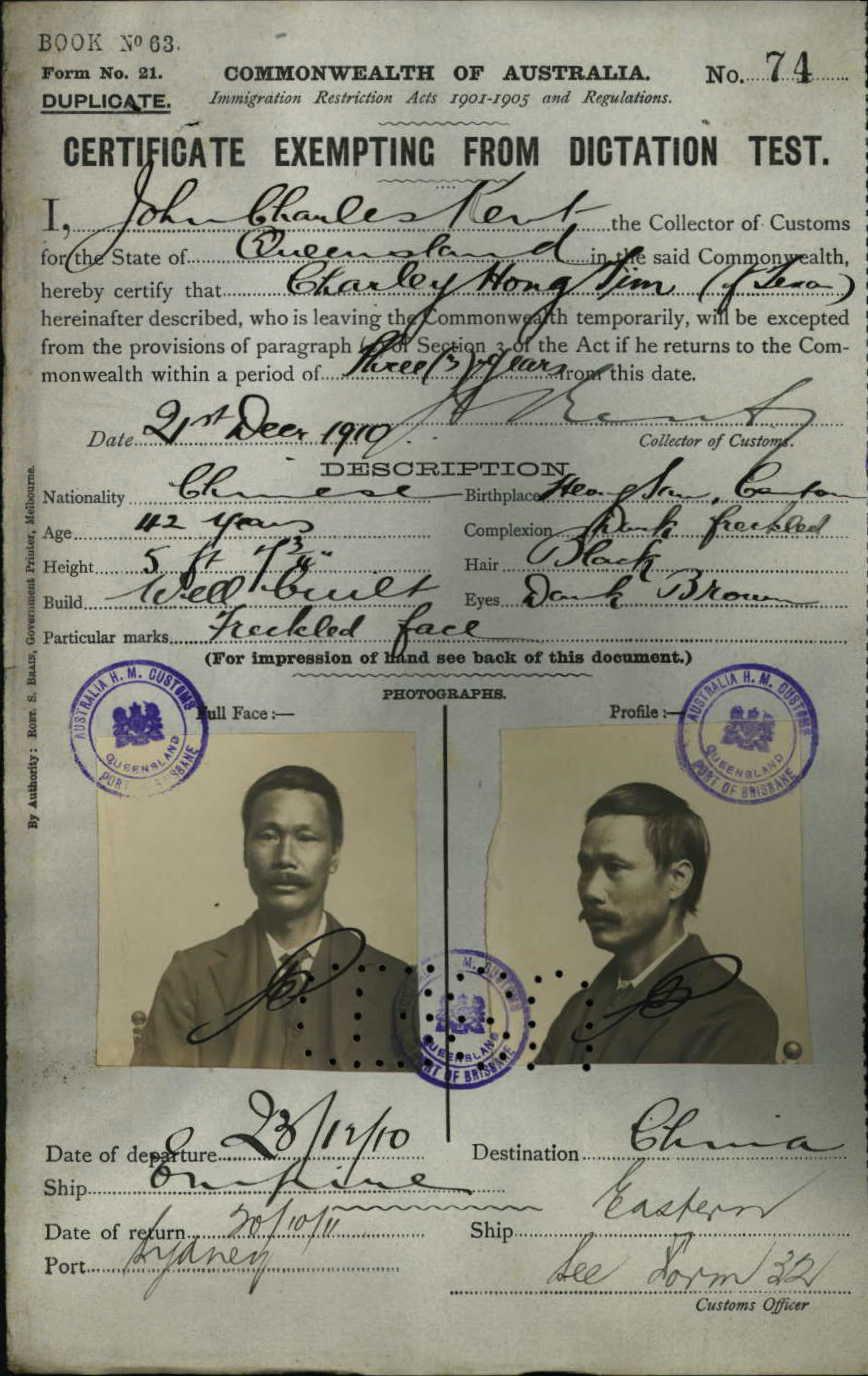 BOOK No 63.
Form No. 21. COMMONWEALTH OF AUSTRALIA. No. 74
DUPLICATE. Immigration Restriction Acts 1901-1905 and Regulations.
CERTIFICATE EXEMPTING FROM DICTATION TEST.
I, John Charles Kent the Collector of Customs
for the State of Queensland in the said Commonwealth,
hereby certify that Charley Hong
hereinafter described, who is leaving the Commonwealth temporarily, will be excepted
from the provisions of paragraph of Section 3 of the Act if he returns to the Com-
monwealth within a period of three (3) years from this date.
Date 21st Decr 1910 Kent
Collector of Customs.
DESCRIPTION
Nationality Chinese Birthplace Heong San, Canton
Age 42 years Complexion Dark freckled
Height 5 ft 7 3/4" Hair Black
Build Well built Eyes Dark Brown
Particular marks Freckled face
(For impression of hand see back of this document.)
PHOTOGRAPHS.
Full Face:— Profile:—
AUSTRALIA H. M. CUSTOMS QUEENSLAND PORT BRISBANE
AUSTRALIA H. M. CUSTOMS QUEENSLAND PORT OF BRISBANE
H. M. CUSTOMS QUEENSLAND PORT OF BRISBANE
Date of departure 23/12/10 Destination China
Ship Empire
Date of return 30/10/11 Ship Eastern
Port Sydney See Form 32
Customs Officer
By Authority: ROBT. S. BRAIN, Government Printer, Melbourne.